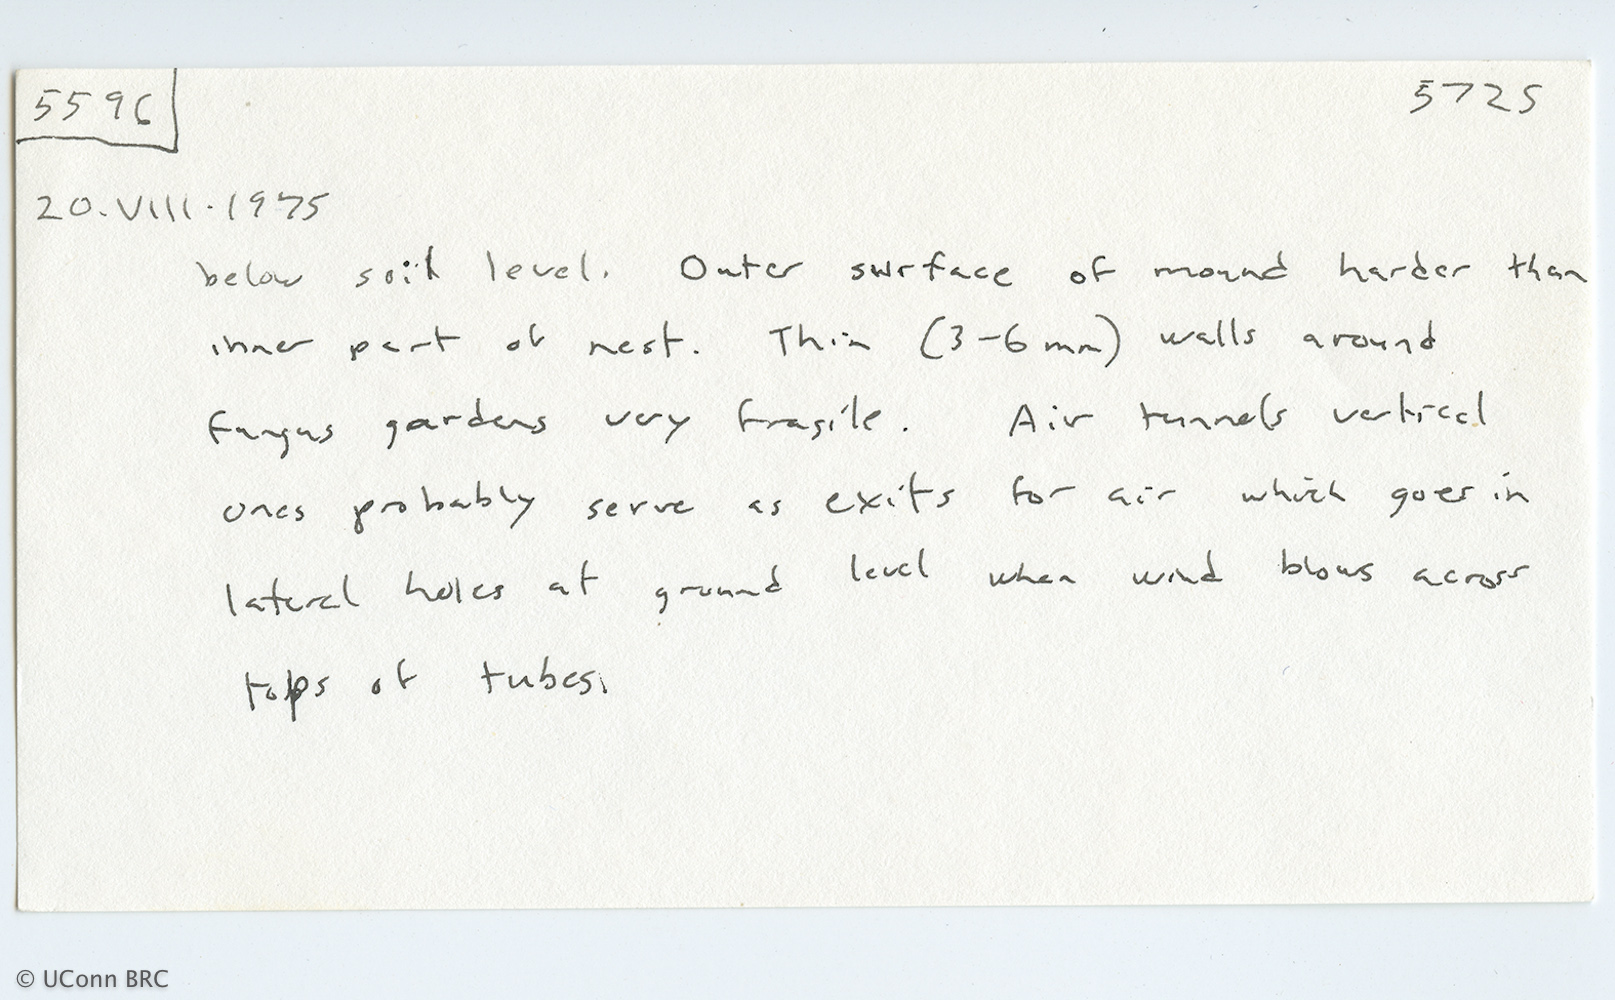 5596
5725
20.VIII.1975
below soil level. Outer surface of mound harder than
inner part of nest. Thin (3-6 mm) walls around
fungus gardens very fragile. Air tunnels vertical
ones probably serve as exits for air which goes in
lateral holes at ground level when wind blows across
tops of tubes.
© UConn BRC